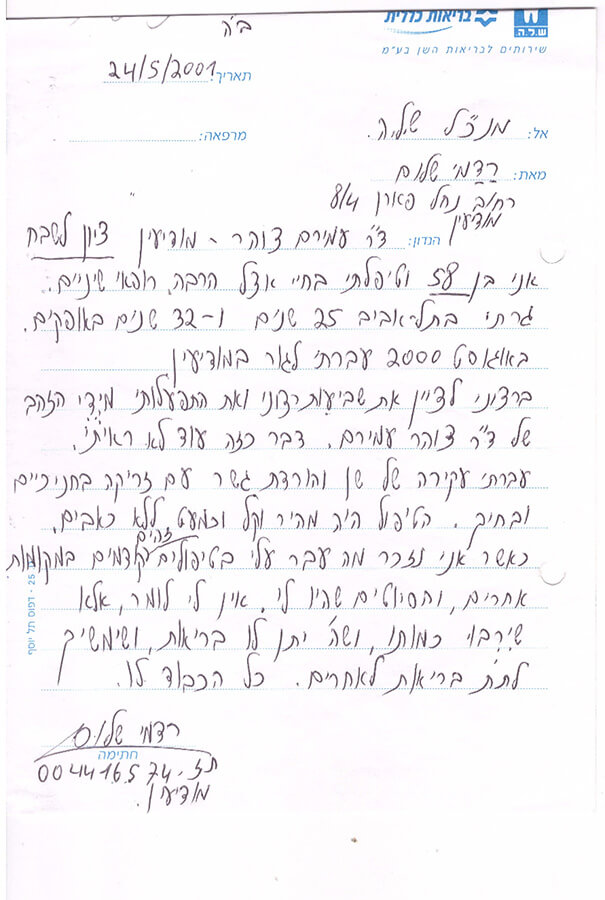 ב"ה
בריאות כללית
ש.ל.ה.
שירותים לבריאות השן בע"מ
תאריך: 24/5/2001
אל: מנכ"ל ש.ל.ה.
מרפאה:
מאת: רדמי שלום
רחוב נחל פארן 8/4
מודיעין
הנדון: ד"ר עמירם צוהר - מודיעין ציון לשבח
אני בן 58 וטיפלתי בחיי אצל הרבה רופאי שיניים.
גרתי בתל-אביב 25 שנים ו-32 שנים באופקים.
באוגוסט 2000 עברתי לגור במודיעין
ברצוני לציין את שביעות רצוני ואת התפעלותי מידי הזהב
של ד"ר צוהר עמירם. דבר כזה עוד לא ראיתי.
עברתי עקירה של שן והורדת גשר עם זריקה בחניכיים
ובחיך. הטיפול היה מהיר וקל וכמעט ללא כאבים.
כאשר אני נזכר מה עבר עלי בטיפולים זהים קודמים במקומות
אחרים, וחסיוטים שהיו לי, אין לי לומר, אלא
שירבו כמותו, ושה' יתן לו בריאות, ושימשיך
לתת בריאות לאחרים. כל הכבוד לו.
רדמי שלום
חתימה
ת.ז. 004416574
מודיעין.
דפוס תל יוסף - 25